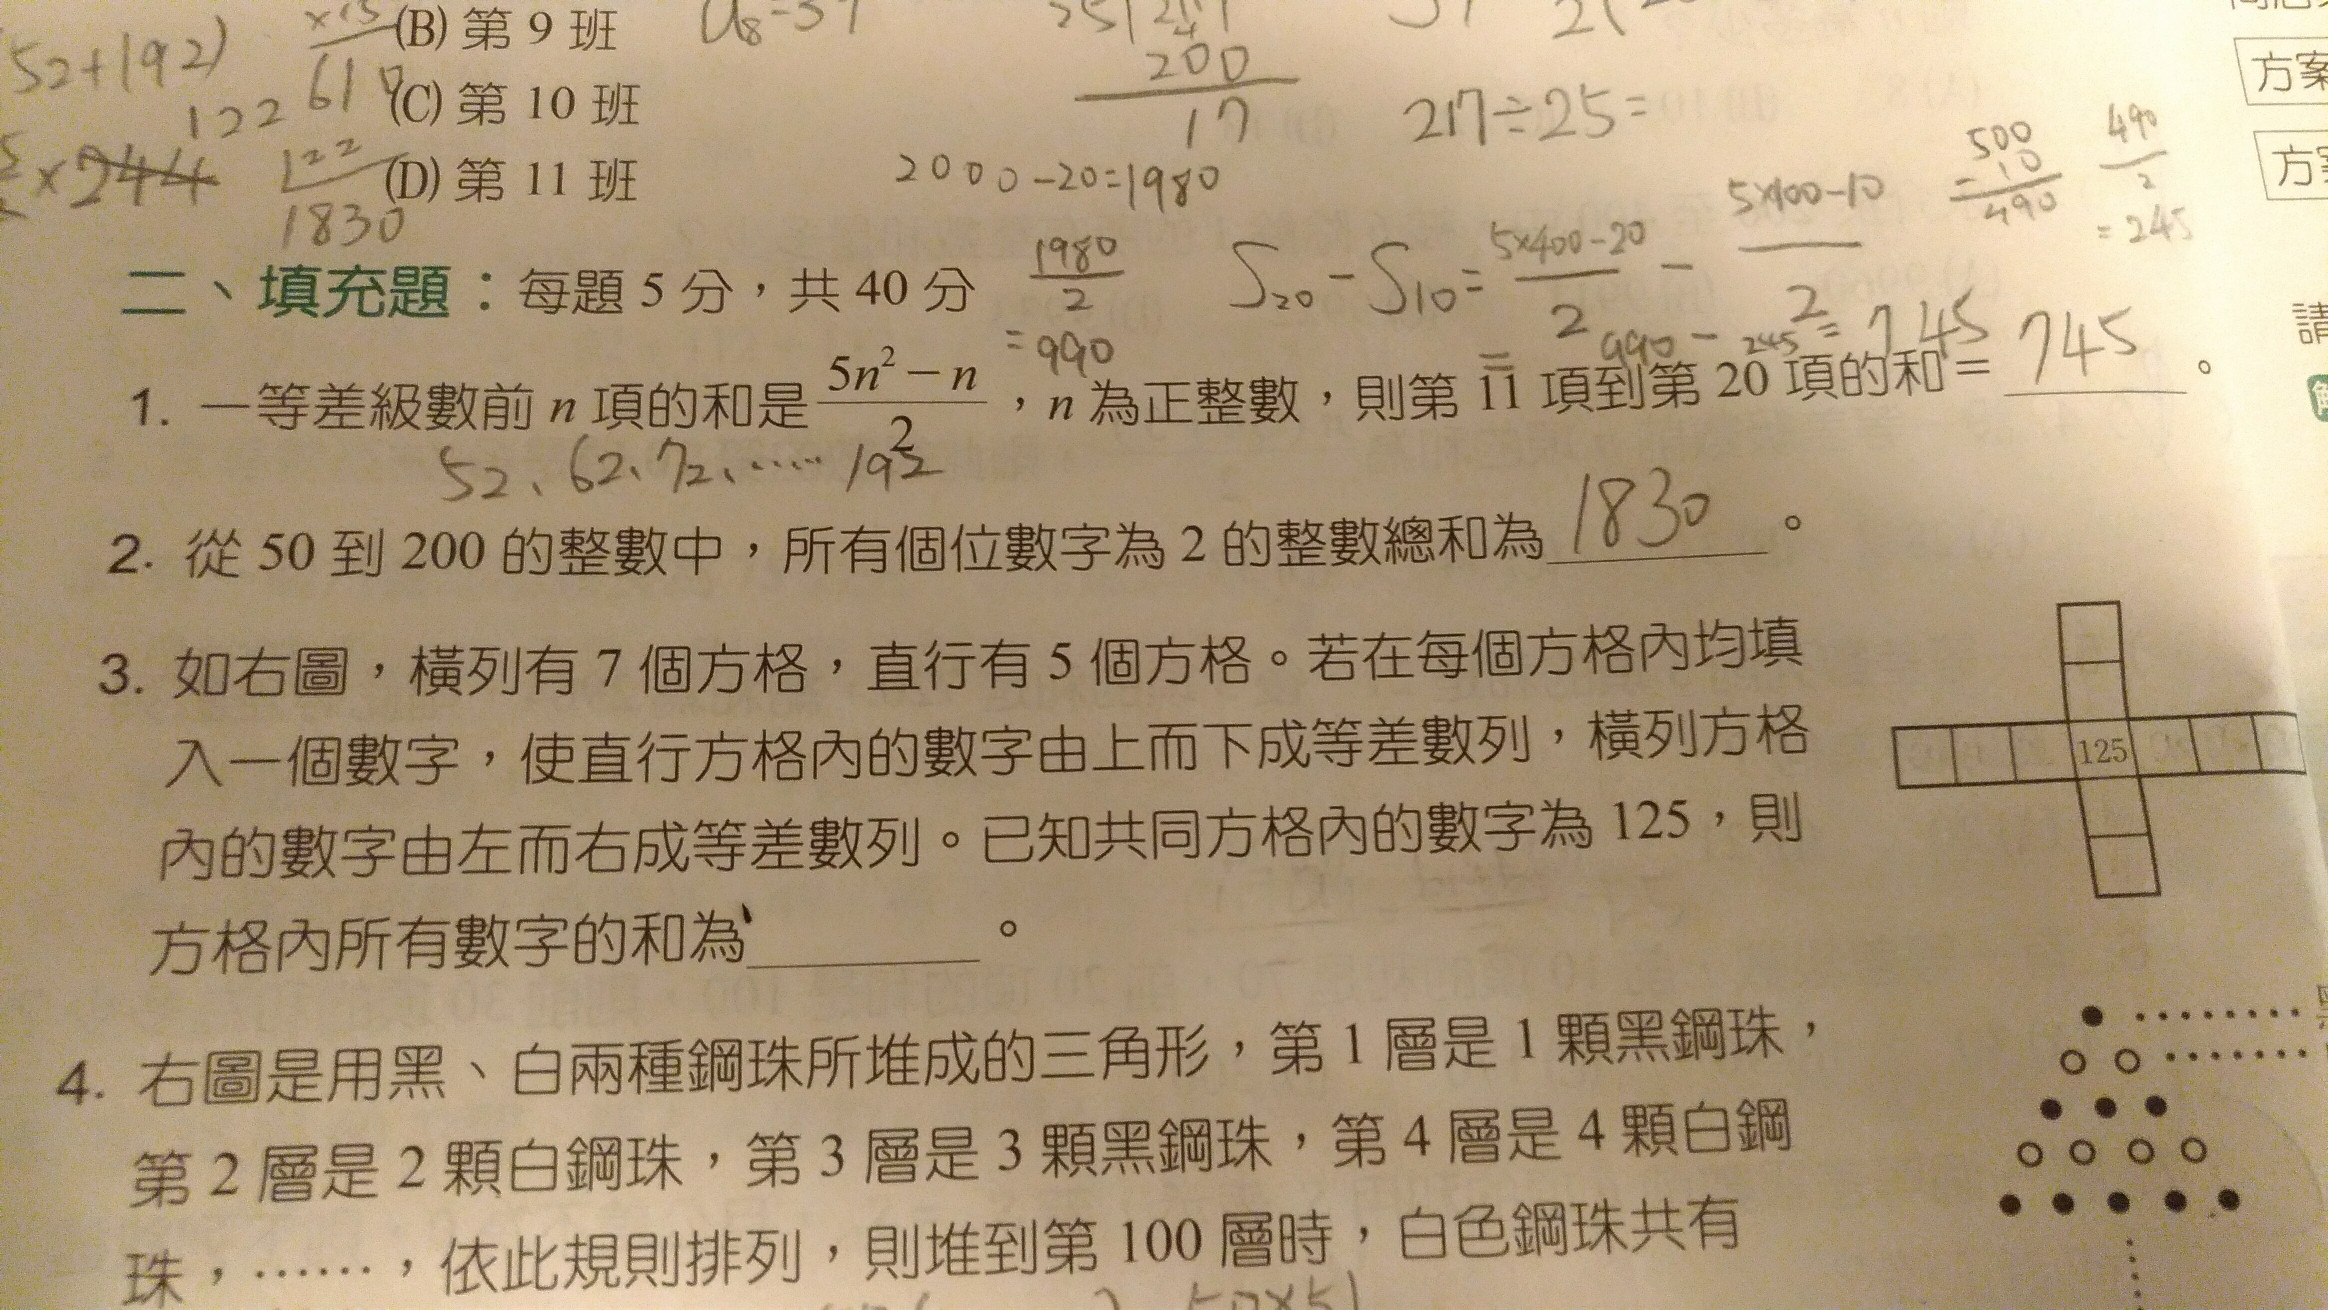 (B) 第 9 班
(C) 第 10 班
(D) 第 11 班
52+192)
122
×244
×15
610
122
1830
200
17
217÷25=
2000-20=1980
1980/2
=990
S20-S10= (5×400-20)/2 - (5×100-10)/2
= 990 - 245 = 745
500
- 10
490
490/2
=245
方案
方案
請
二、填充題：每題 5 分，共 40 分
1. 一等差級數前 n 項的和是 (5n²-n)/2，n 為正整數，則第 11 項到第 20 項的和＝ 745 。
52、62、72、……192
2. 從 50 到 200 的整數中，所有個位數字為 2 的整數總和為 1830 。
3. 如右圖，橫列有 7 個方格，直行有 5 個方格。若在每個方格內均填
入一個數字，使直行方格內的數字由上而下成等差數列，橫列方格
內的數字由左而右成等差數列。已知共同方格內的數字為 125，則
方格內所有數字的和為 。
125
4. 右圖是用黑、白兩種鋼珠所堆成的三角形，第 1 層是 1 顆黑鋼珠，
第 2 層是 2 顆白鋼珠，第 3 層是 3 顆黑鋼珠，第 4 層是 4 顆白鋼
珠，……，依此規則排列，則堆到第 100 層時，白色鋼珠共有
50×51